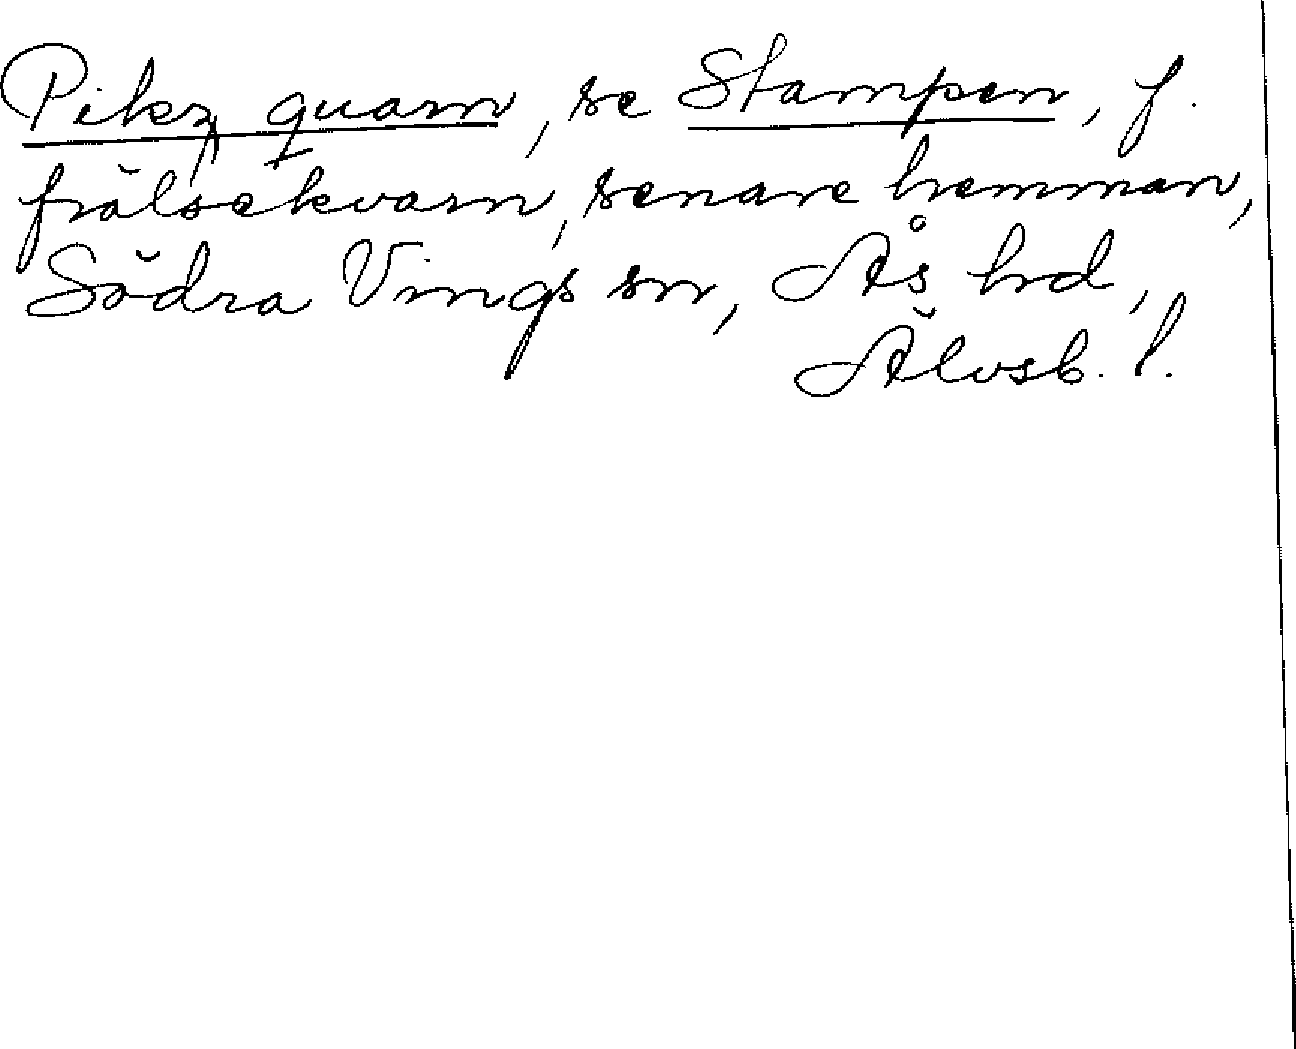 Pikz quarn, se Stampen, f.
frälsekvarn, senare hemman,
Södra Vings sn, Ås hd,
Älvsb. l.